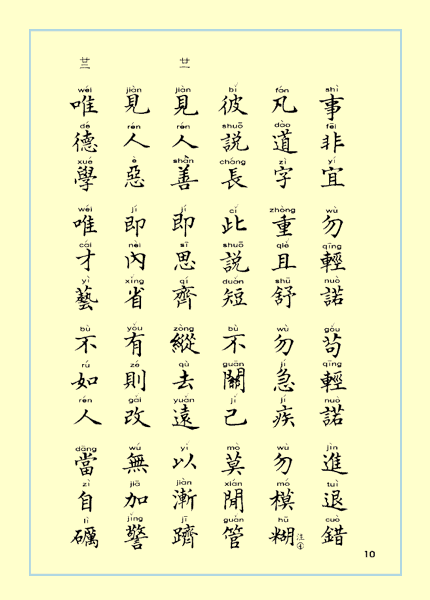 shì fēi yí wù qīng nuò gǒu qīng nuò jìn tuì cuò
事非宜 勿輕諾 苟輕諾 進退錯
fán dào zì zhòng qiě shū wù jí jí wù mó hú
凡道字 重且舒 勿急疾 勿模糊 注④
bǐ shuō cháng cǐ shuō duǎn bù guān jǐ mò xián guǎn
彼說長 此說短 不關己 莫閒管
廿二
jiàn rén shàn jí sī qí zòng qù yuǎn yǐ jiàn jī
見人善 即思齊 縱去遠 以漸躋
jiàn rén è jí nèi xǐng yǒu zé gǎi wú jiā jǐng
見人惡 即內省 有則改 無加警
廿三
wéi dé xué wéi cái yì bù rú rén dāng zì lì
唯德學 唯才藝 不如人 當自礪
10